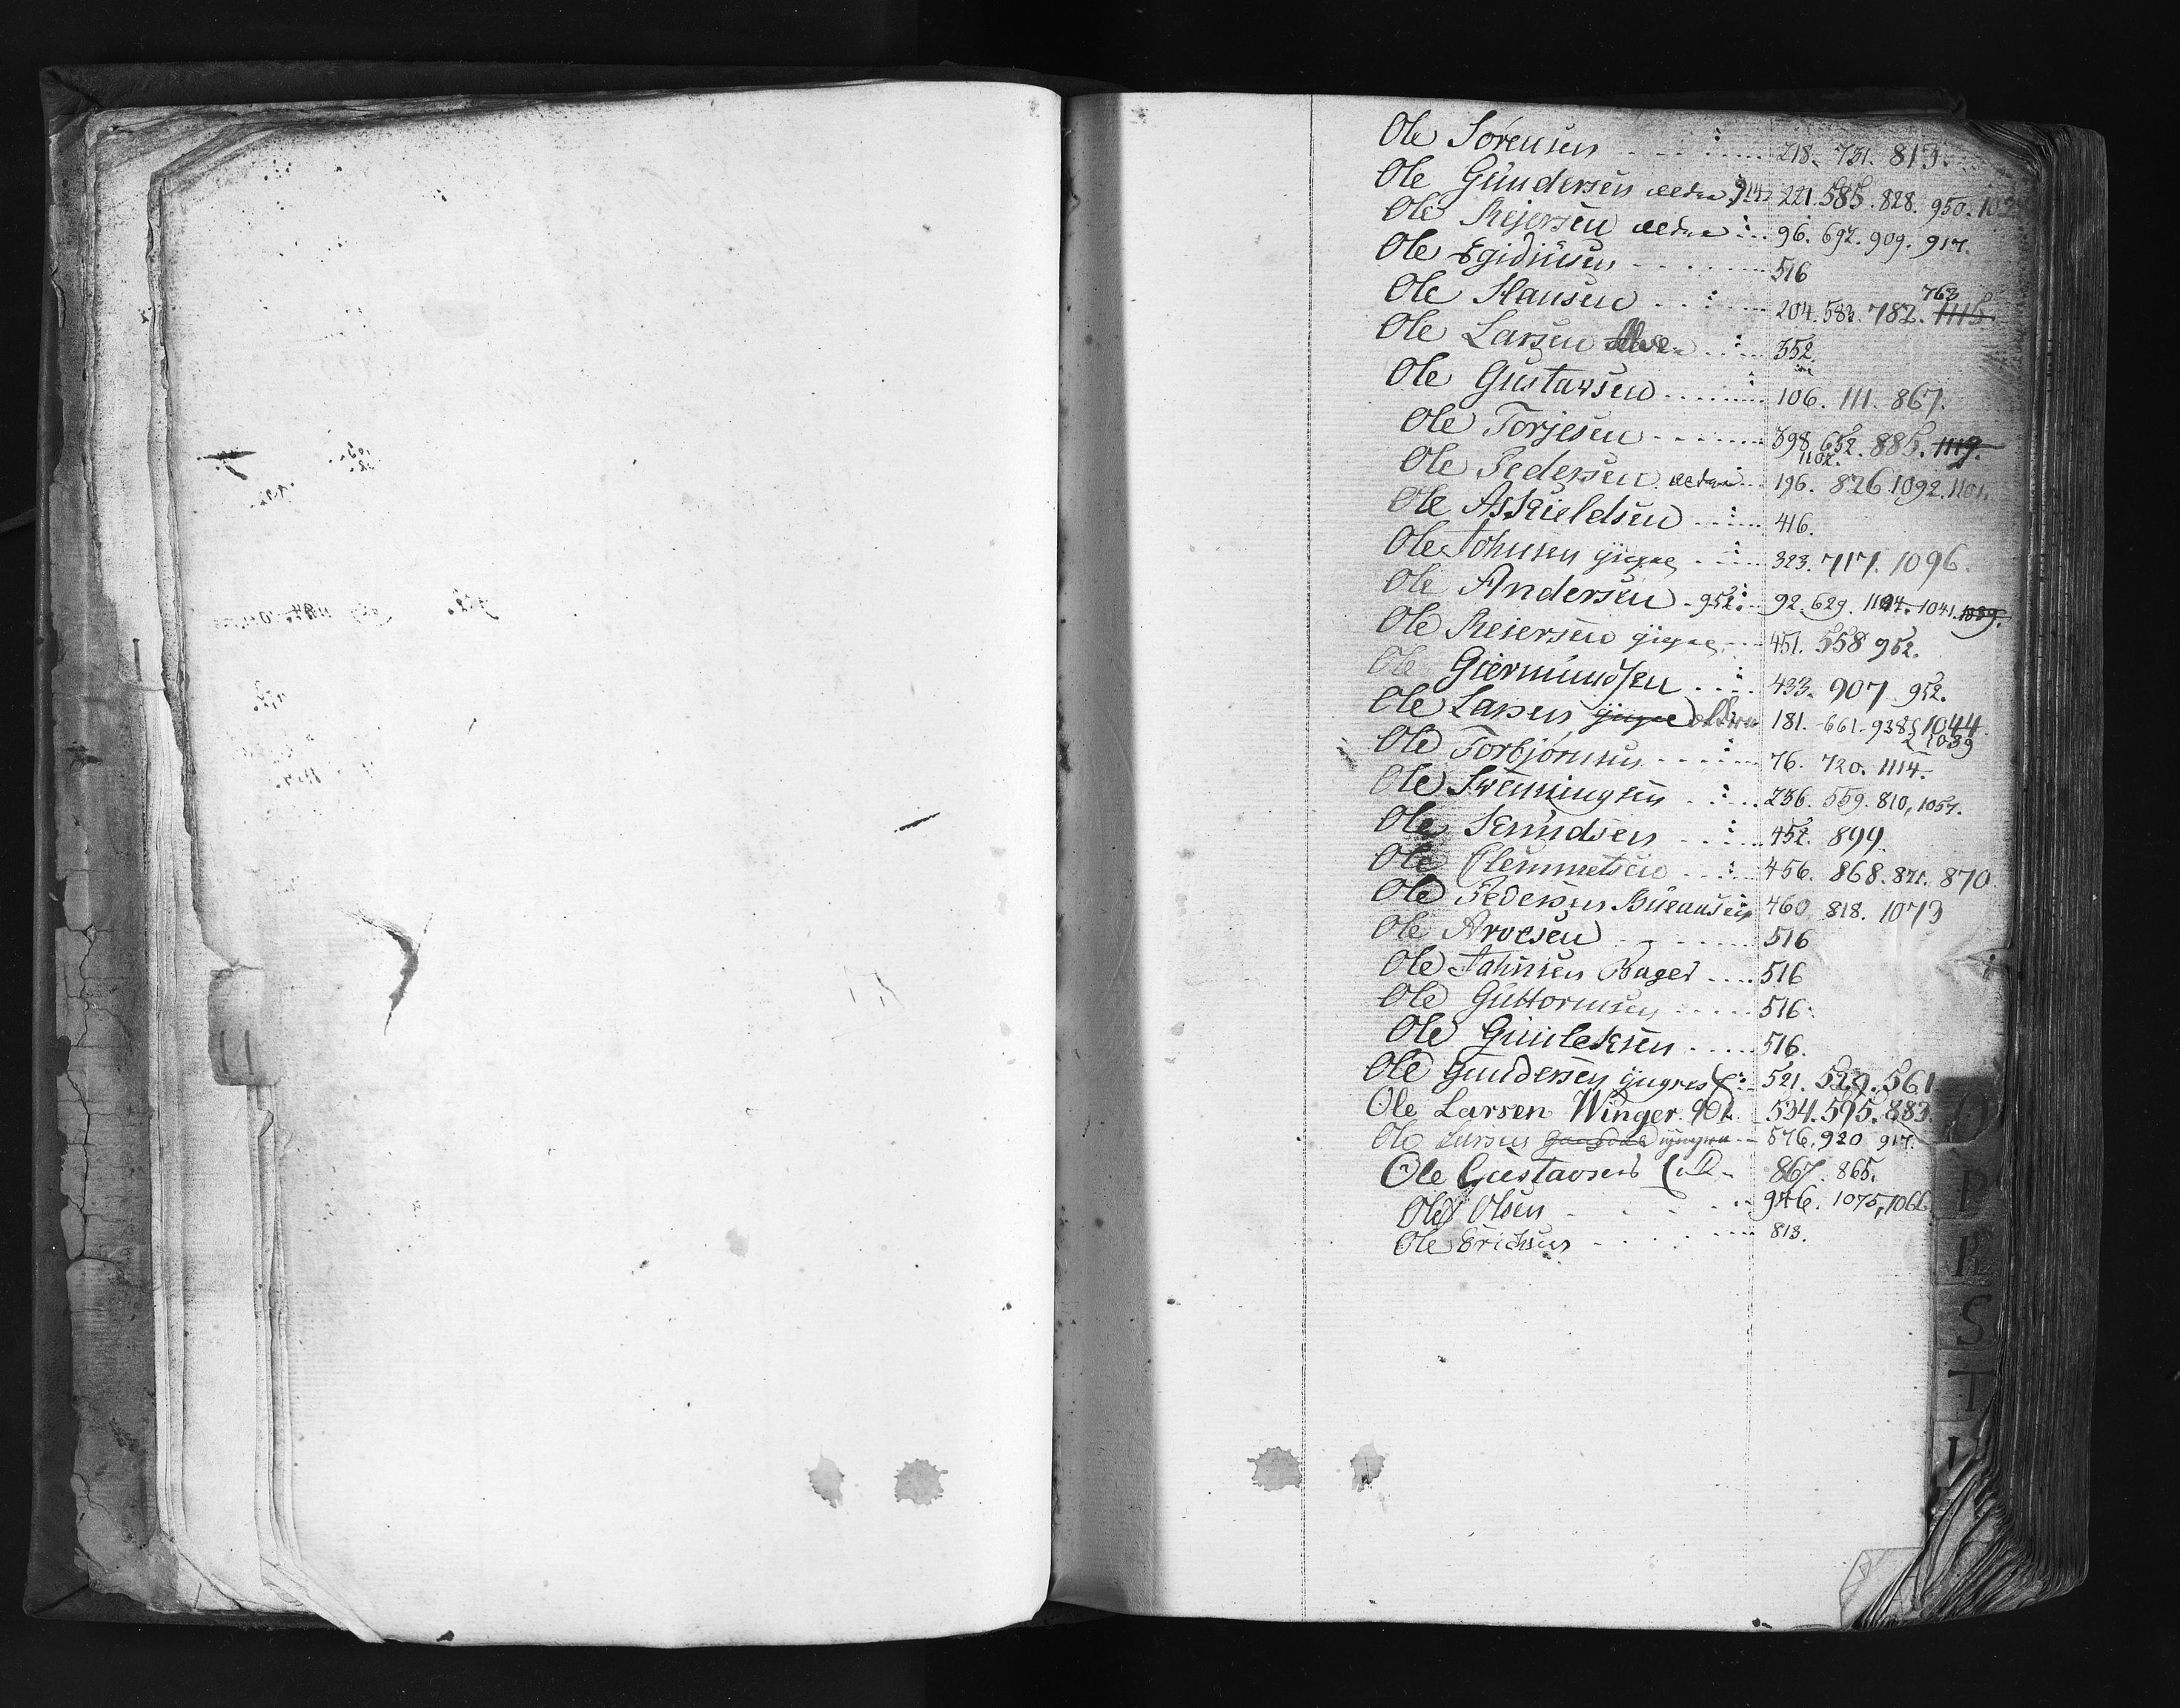 Ole Sörensen 218. 731. 813.
Ole Gundersen ældre 914 221. 585. 828. 950.
Ole Rejersen ældre 96. 697. 909. 917.
Ole Egidiusen 516
763
Ole Hansen 204. 583. 782. 1115.
Ole Larsen 352.
Ole Gustavsen 106. 111. 867.
Ole Torjesen 398 652. 885. 1119.
1102.
Ole Pedersen ældre 196. 826 1092. 1101.
Ole Askieldsen 416.
Ole Johnsen yngre 323. 717. 1096.
Ole Andersen 952. 92. 629. 1104. 1041. 1039.
Ole Reiersen yngre 451. 558 952.
Ole Giermundsen 433. 907 952.
Ole Larsen yngre ældre 181. 661. 938 1044
1039
Ole Torbjörnsen 76. 720. 1114.
Ole Svenningsen 236. 559. 810, 1057.
Ole Knudsen 452. 899.
Ole Clemmetsen 456. 868. 871. 870.
Ole Pedersen 460. 818. 1073
Ole Aroesen 516
Ole Jahnsen Bager 516
Ole Guttormsen 516.
Ole Gunleksen 516.
Ole Gundersen yngres 521. 529. 561
Ole Larsen Winger 901. 534. 595. 883
Ole Larsen yngre 576. 920 917.
Ole Gustavsen 867. 865.
Ole Olsen 946. 1075, 1066
Ole Erichsen 813.
O
P
R
S
T